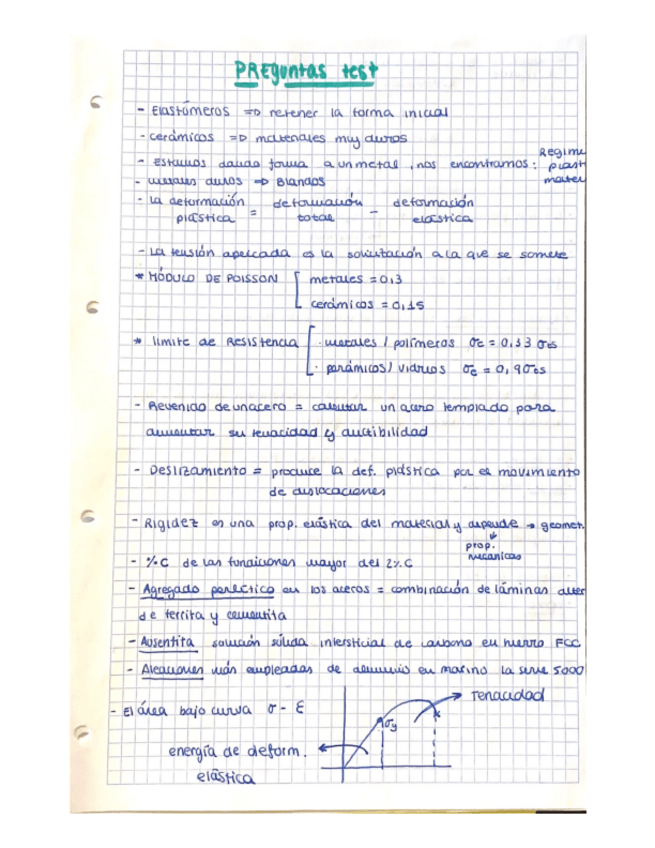 PREguntas test
- Elastómeros => retener la forma inicial
- cerámicos => materiales muy duros
- Estamos dando forma a un metal, nos encontramos: Regime
plast
- metales duros => Blandos mater
- La deformación plástica = deformación total - deformación elástica
- La tensión aplicada es la solicitación a la que se somete
* MÓDULO DE POISSON [ metales = 0,3
cerámicos = 0,15
* límite de Resistencia [ · metales / polímeros σc = 0,33 σes
· / vidrios σc = 0,9 σes
- Revenido de un acero = calentar un acero templado para
aumentar su tenacidad y ductibilidad
- Deslizamiento = produce la def. plástica por el movimiento
de dislocaciones
- Rigidez es una prop. elástica del material y depende → geomet.
prop.
mecanicas
- %C de las fundiciones mayor del 2%C
- Agregado perléctico en los aceros = combinación de láminas alter
de ferrita y cementita
- Ausentita solución sólida intersticial de carbono en hierro FCC
- Aleaciones más empleadas de aluminio en marino la serie 5000
- El área bajo curva σ - ε
tenacidad
σy
energía de deform.
elástica